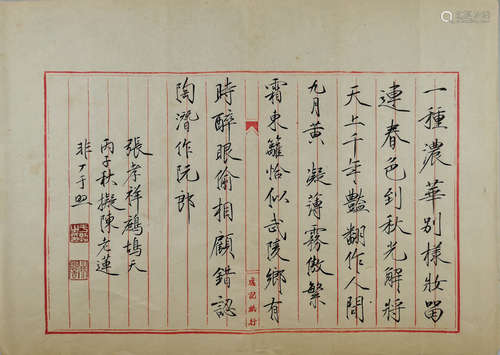 一種濃華別樣妝留
連春色到秋光解將
天上千年艷翻作人間
九月黃 凝薄霧傲繁
霜東籬恰似武陵鄉有
時醉眼偷相顧錯認
陶潛作阮郎
張孝祥鷓鴣天
丙子秋擬陳老蓮
非厂于照
成記紙行